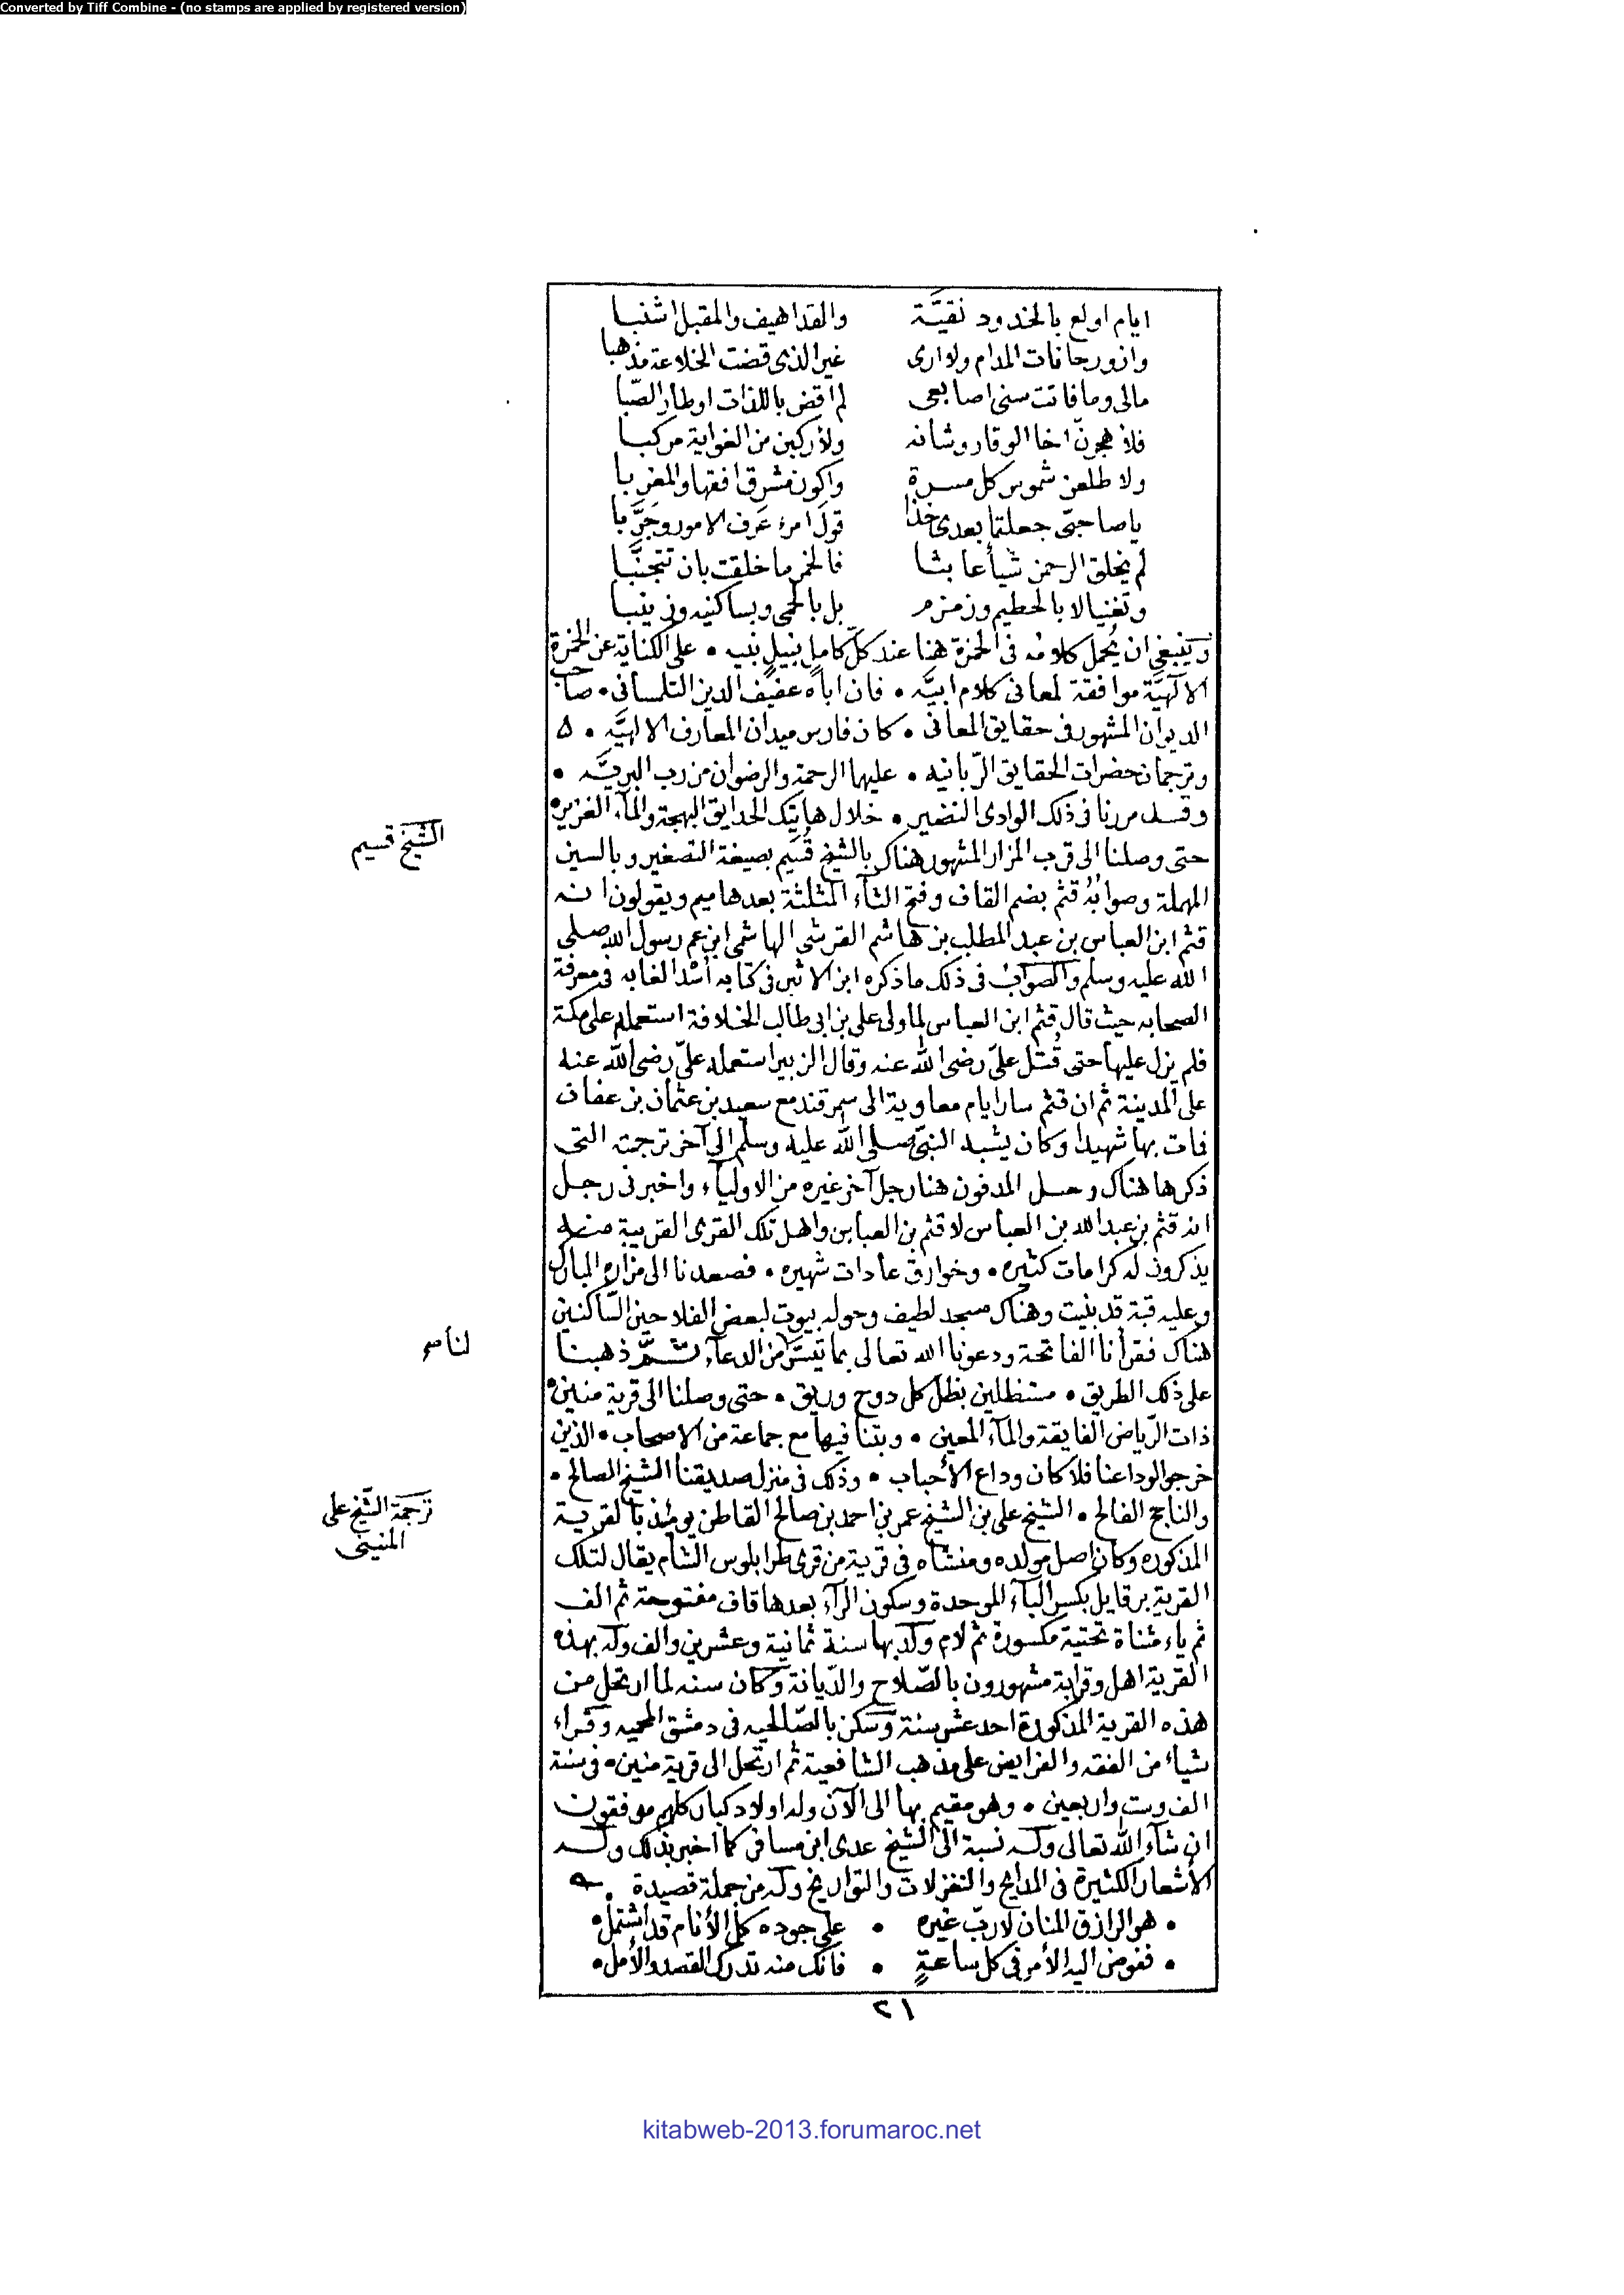 Converted by Tiff Combine - (no stamps are applied by registered version)
ايام اولع بالخدود نقيَّة والقد اهيف والمقبل اشنبا
وازور حانات المدام ولا ارى غير الذى قضت الخلاعة مذهبا
مالى وما فاتت سنى اصابعى لم اقض باللذات اوطار الصّبا
فلاهجرنّ اخا الوقار وشانه ولأركبن من الغواية مركبا
ولا طلعن شموس كل مسرة واكون مشرق افقها والمغربا
يا صاحبىّ جعلتما بعدى خذا قول امرء عرف الامور وجرَّبا
لم يخلق الرحمن شيأ عابثا فالخمر ما خلقت بان تتجنَّبا
وتغنيا لا بالحطيم وزمزم بل بالحمى وبساكنيه وزينبا
وينبغى ان يُحمل كلامه فى الخمرة هنا عند كلّ كاملٍ نبيلٍ نبيه • على الكناية عن الخمرة
الآلهيَّة موافقة لمعانى كلام ابيَّه • فان اباه عفيف الدين التلمسانى • صاحب
الديوان المشهور فى حقايق المعانى • كان فارس ميدان المعارف الالهيَّه • ه
وترجمان حضرات الحقايق الرّبانيه • عليهما الرحمة والرضوان من رب البريَّه •
وقد مررنا فى ذلك الوادى النضير • خلال هاتيك الحدايق البهجة والمآء الغزير •
الشيخ قسيم
حتى وصلنا الى قرب المزار المشهور هناك بالشيخ قُسَيم بصيغة التصغير وبالسين
المهملة وصوابُهُ قثم بضم القاف وفتح الثآء المثلثة بعدها ميم ويقولون انه
قثم ابن العباس بن عبد المطلب بن هاشم القرشى الهاشمى ابن عم رسول الله صلى
الله عليه وسلم والصواب فى ذلك ما ذكره ابن الاثير فى كتابه أسد الغابه فى معرفة
الصحابه حيث قال قثم ابن العباس لما ولى على بن ابى طالب الخلافة استعمله على مكة
فلم يزل عليها حتى قُتل علىّ رضى الله عنه وقال الزبير استعمله علىّ رضى الله عنه
على المدينة ثم ان قثم سار ايام معاوية الى سمرقند مع سعيد بن عثمان بن عفان
فمات بها شهيدا وكان يشبه النبىّ صلى الله عليه وسلم الى آخر ترجمته التى
ذكرها هناك و المدفون هنا رجل آخر غيره من الاوليآء واخبرنى رجل
انه قثم بن عبد الله بن العباس لا قثم بن العباس واهل تلك القرى القريبة منه
يذكرون له كرامات كثيره • وخوارق عادات شهيره • فصعدنا الى مزاره المبارك
وعليه قبة قد بنيت وهناك مسجد لطيف وحوله بيوت لبعض الفلاحين السّاكنين
هناك فقرأنا الفاتحة ودعونا الله تعالى بما تيسّر من الدعآء ثـمّ ذهبنا
على ذلك الطريق • مستظلين بظل كل دوح وريق • حتى وصلنا الى قرية منين •
ذات الرّياض الفايقة والمآء المعين • وبتنا فيها مع جماعة من الاصحاب • الذين
خرجوا لوداعنا فلا كان وداع الأحباب • وذلك فى منزل صديقنا الشيخ الصالح •
ترجمة الشّيخ على
المنينى
والناجح الفالح • الشيخ على بن الشيخ عمر بن احمد بن صالح القاطن يومئذ بالقرية
المذكوره وكان اصل مولده ومنشاه فى قرية من قرى طرابلوس الشام يقال لتلك
القرية برقايل بكسر البآء الموحدة وسكون الرآء بعدها قاف مفتوحة ثم الف
ثم ياء مثناة تحتية مكسورة ثم لام ولد بها سنة ثمانية وعشرين والف وله بهذه
القرية اهل وقرابة مشهورون بالصّلاح والدّيانة وكان سنه لما ارتحل من
هذه القرية المذكورة احد عشر سنة وسكن بالصّالحيه فى دمشق المحميه وقراء
شيأ من الفقه والفرايض على مذهب الشافعية ثم ارتحل الى قرية منين • فى سنة
الف وست واربعين • وهو مقيم بها الى الآن وله اولاد كبار كلهم موفقون
ان شآء الله تعالى وله نسبة الى الشيخ عدى ابن مسافر كما اخبر بذلك وله
الأشعار الكثيرة فى المدايح والتغزلات والتواريخ وله من جملة قصيدة •
• هو الرازق المنان لا ربّ غيره • على جوده كل الأنام قد اشتمل •
• ففوض اليه الأمر فى كل ساعةٍ • فأنك منه تدرك القصد والأمل •
٢١
kitabweb-2013.forumaroc.net